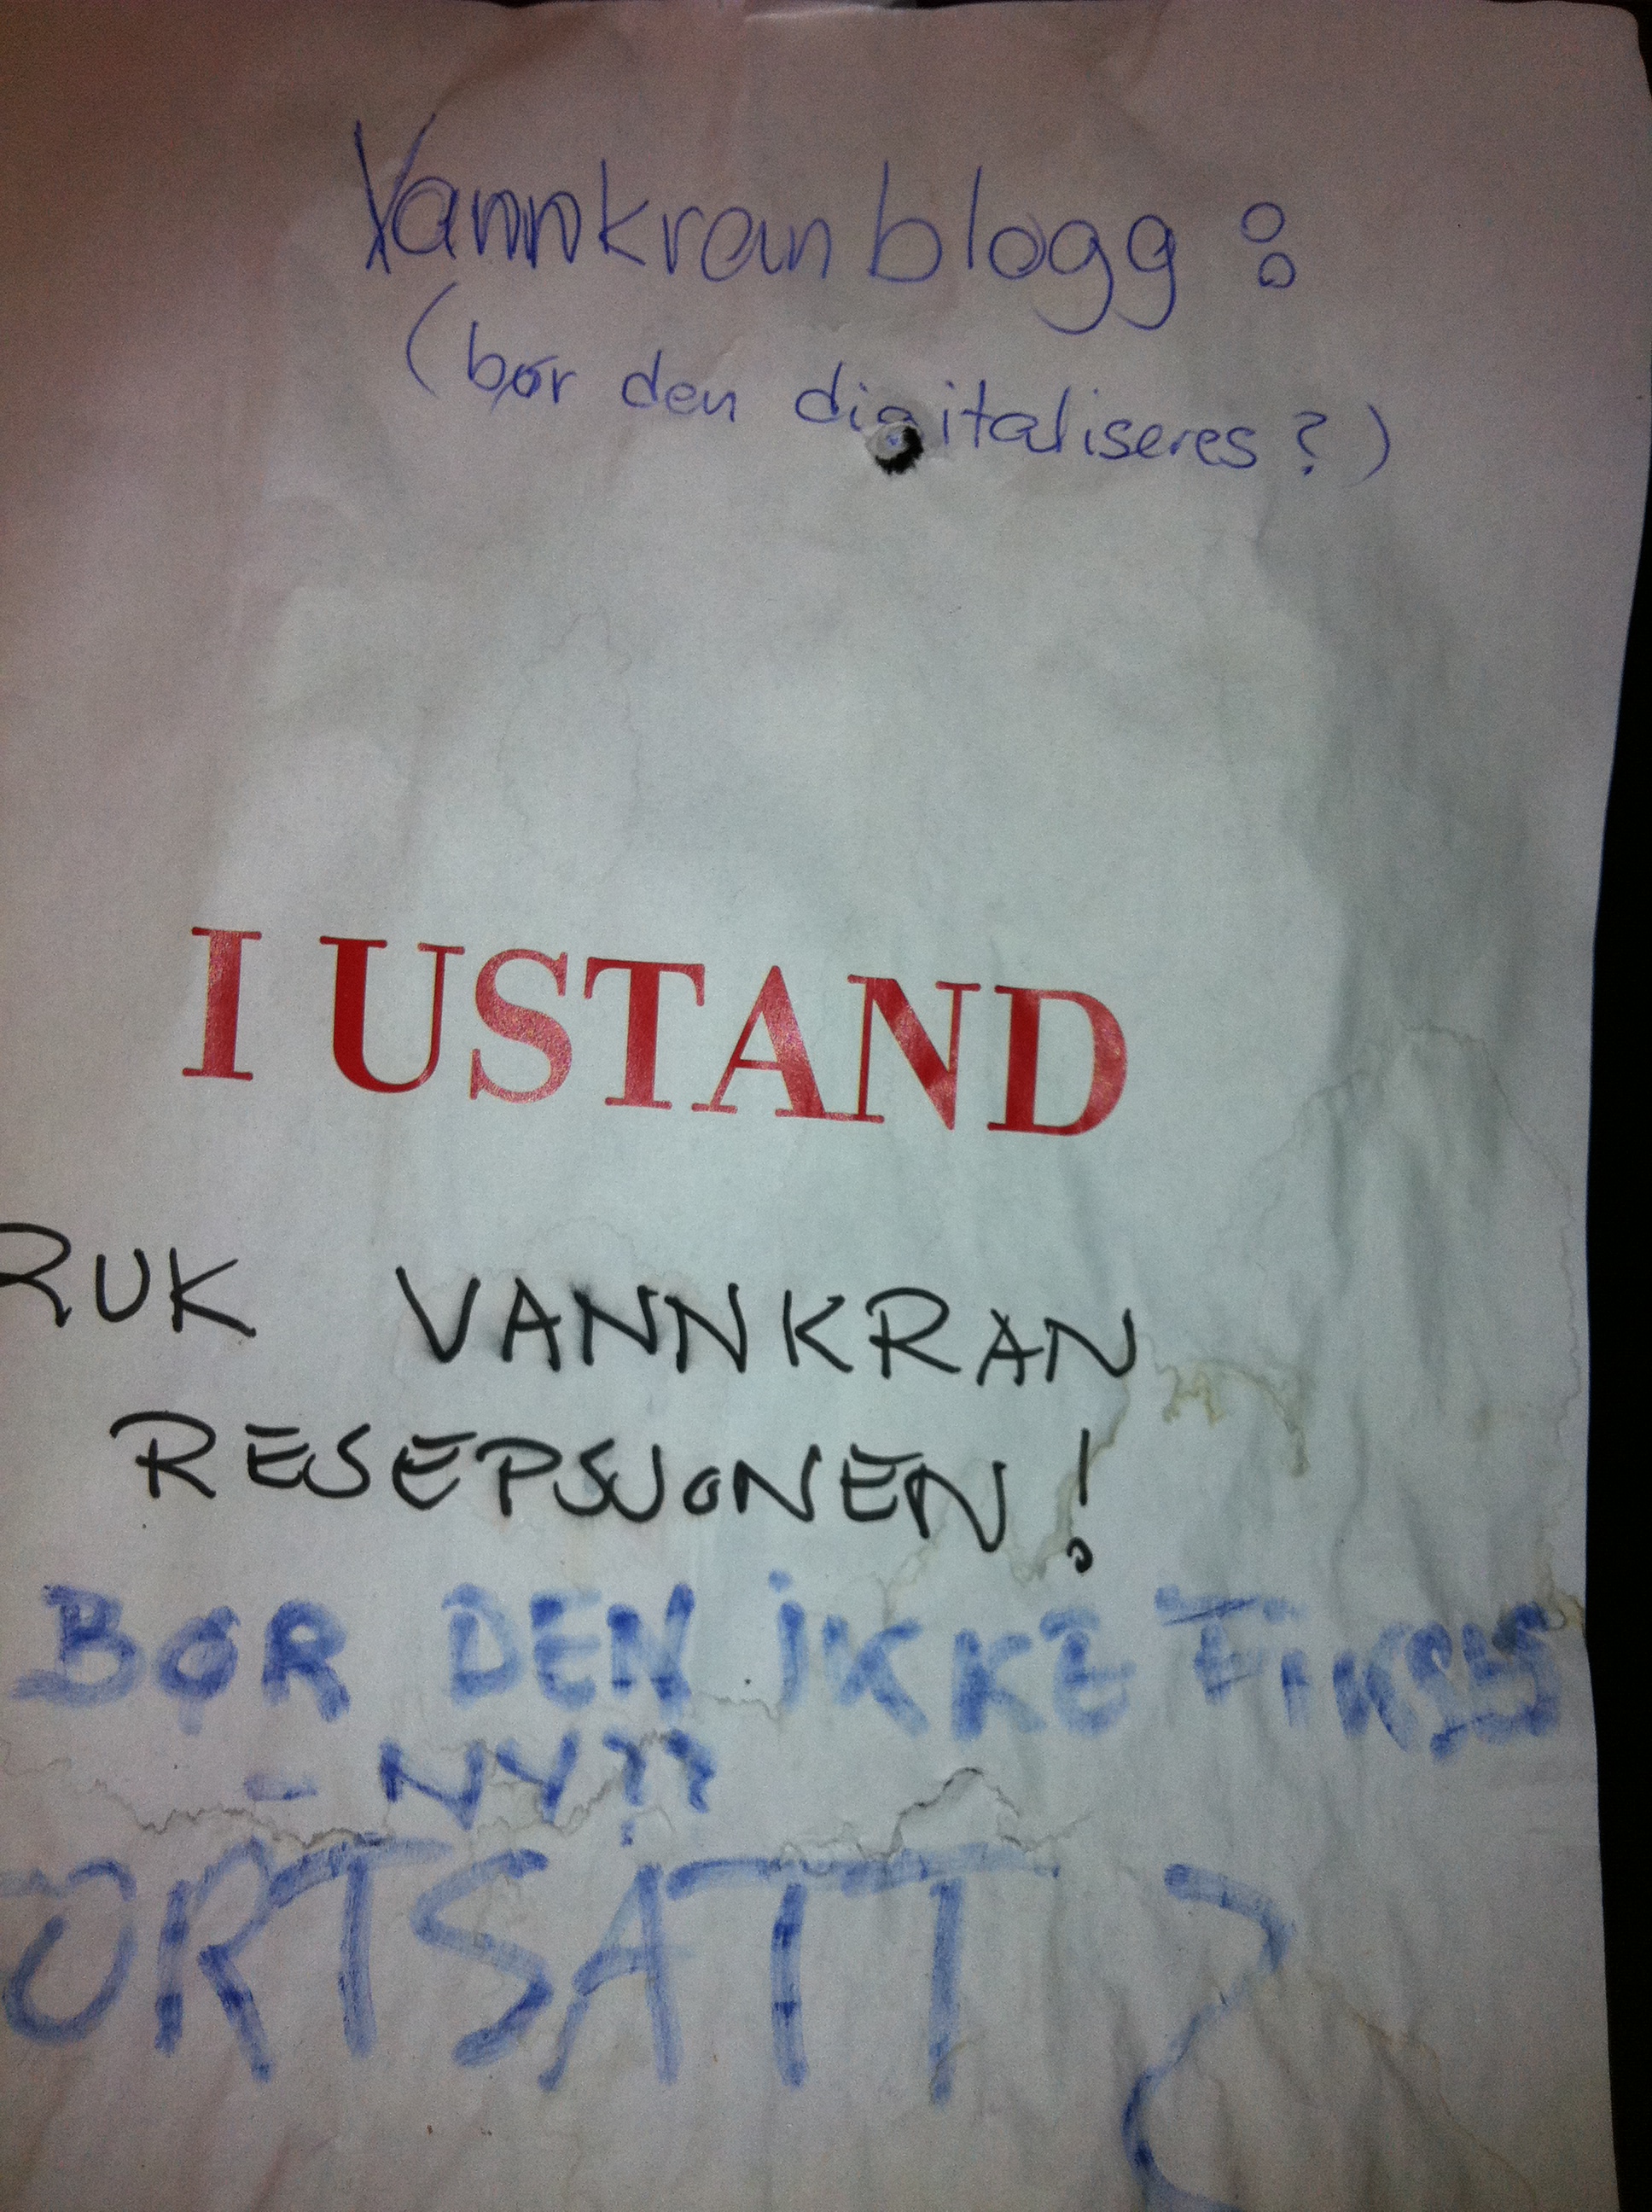 Vannkranblogg:
(bør den digitaliseres?)
I USTAND
RUK VANNKRAN
RESEPSJONEN!
BØR DEN iKKE FIKSES
- NY??
ORTSATT ?